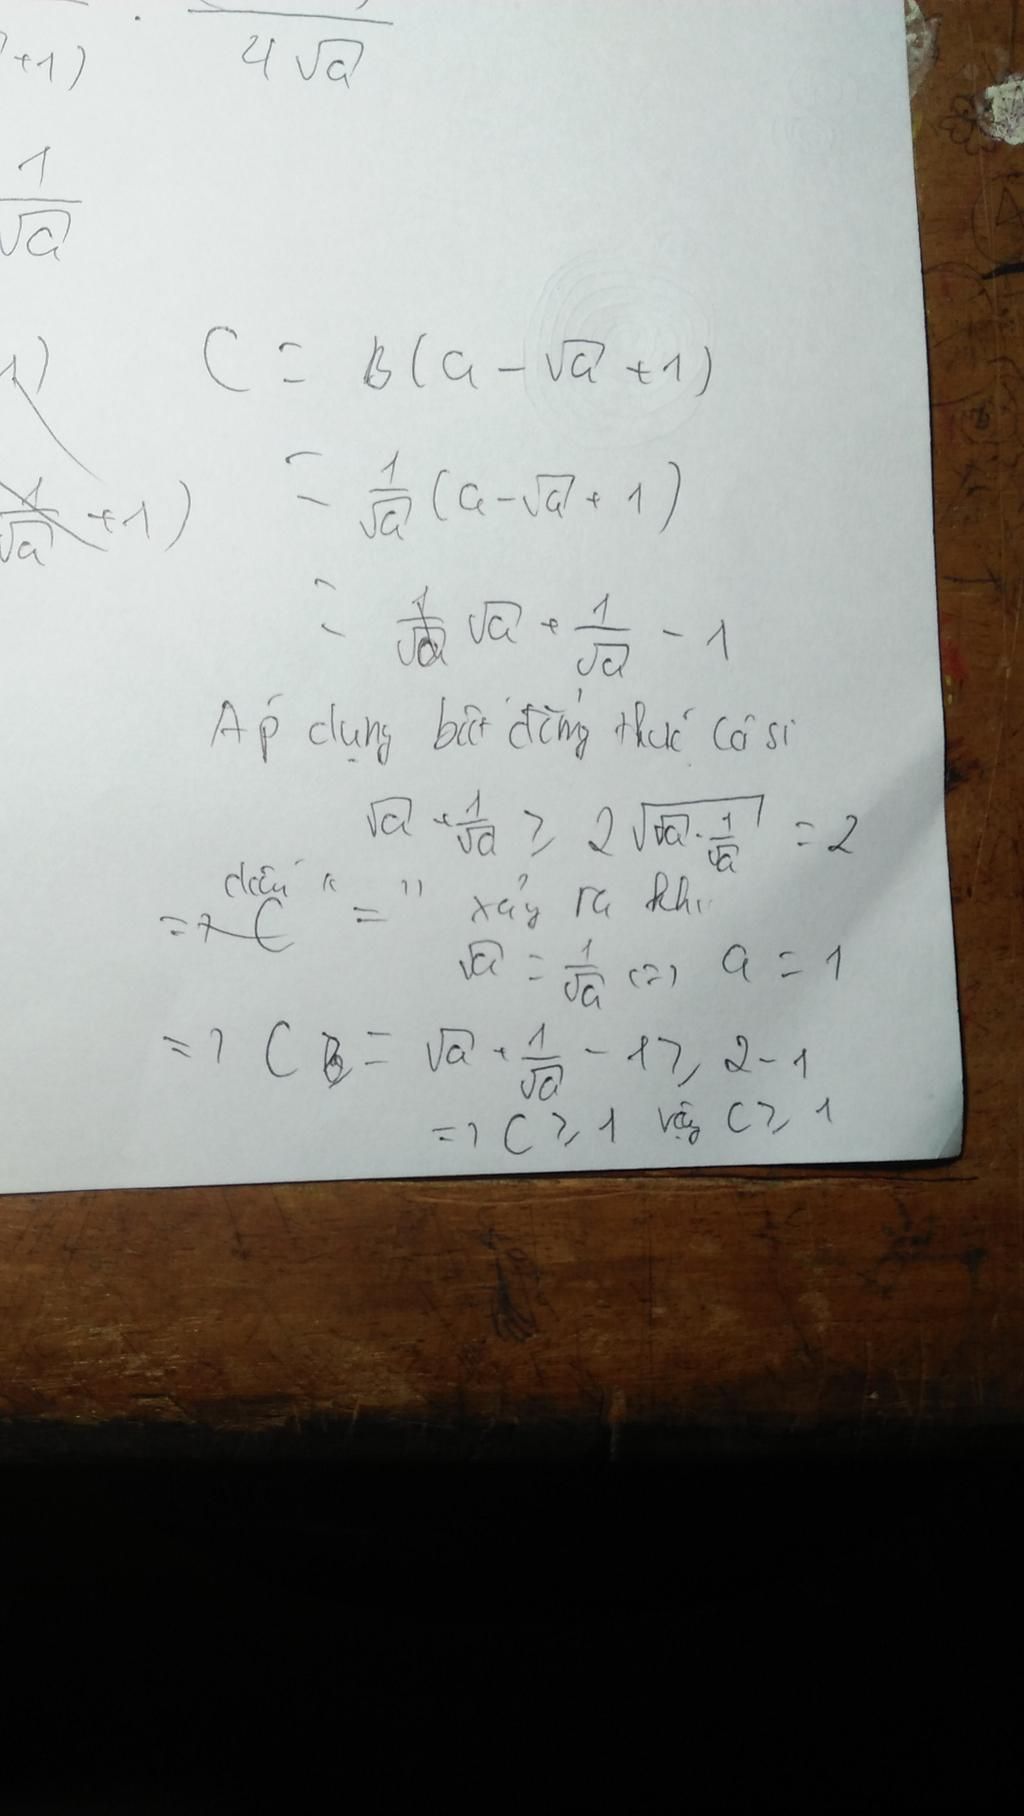 +1) . 4√a
1/√a
1) C = B(a - √a + 1)
1/√a + 1) = 1/√a (a - √a + 1)
= √a + 1/√a - 1
Áp dụng bất đẳng thức cô si
√a + 1/√a ≥ 2√(√a . 1/√a) = 2
dấu " = " xảy ra khi
√a = 1/√a (=) a = 1
=> C = √a + 1/√a - 1 ≥ 2 - 1
=> C ≥ 1 vậy C ≥ 1